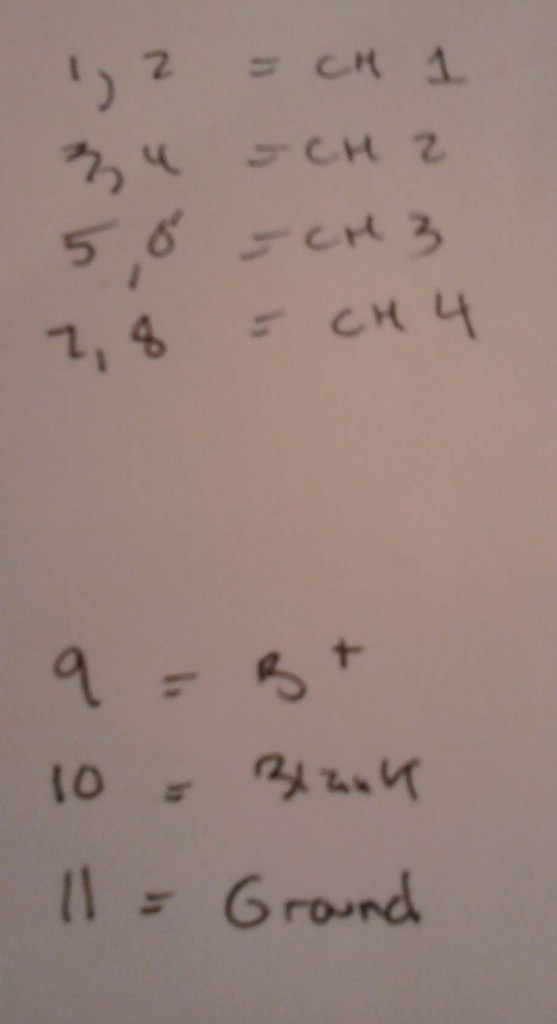 1, 2 = CH 1
3, 4 = CH 2
5, 6 = CH 3
7, 8 = CH 4
9 = B+
10 = Blank
11 = Ground